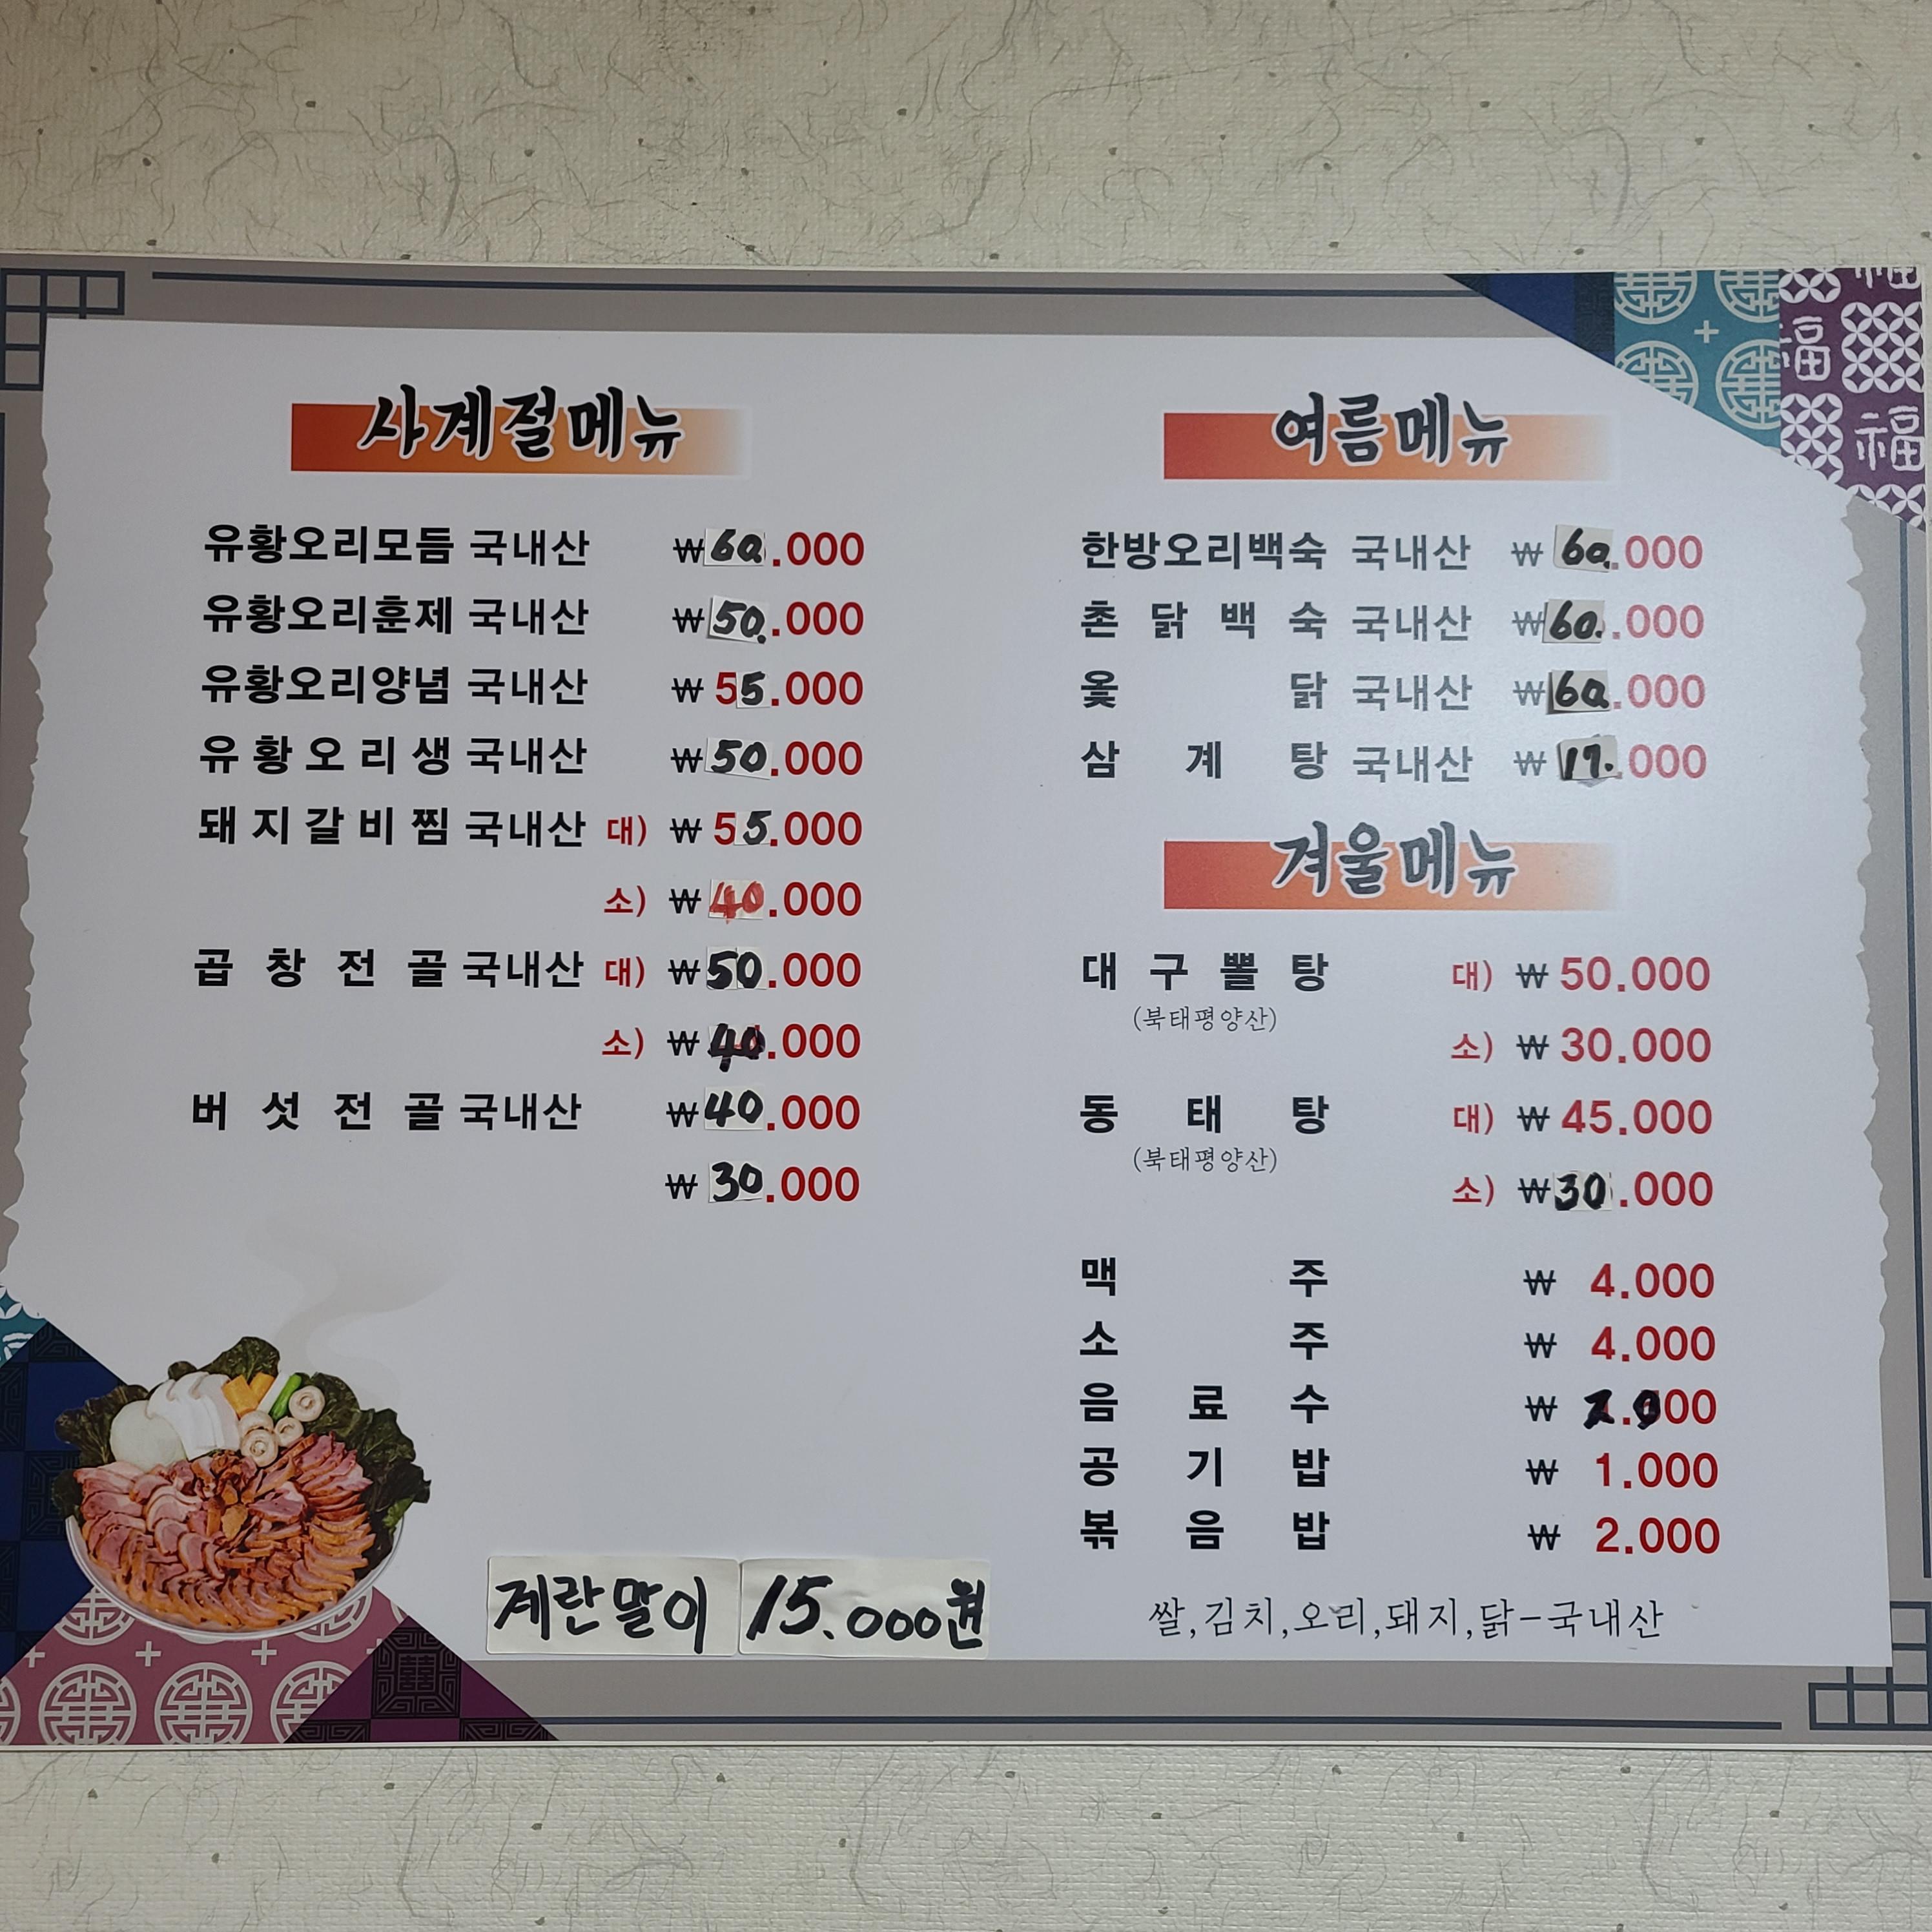 사계절메뉴
유황오리모듬 국내산 ₩60.000
유황오리훈제 국내산 ₩50.000
유황오리양념 국내산 ₩55.000
유황오리생 국내산 ₩50.000
돼지갈비찜 국내산 대) ₩55.000
소) ₩40.000
곱창전골 국내산 대) ₩50.000
소) ₩40.000
버섯전골 국내산 ₩40.000
₩30.000
계란말이 15.000원
여름메뉴
한방오리백숙 국내산 ₩60.000
촌닭백숙 국내산 ₩60.000
옻닭 국내산 ₩60.000
삼계탕 국내산 ₩17.000
겨울메뉴
대구뽈탕 대) ₩50.000
(북태평양산)
소) ₩30.000
동태탕 대) ₩45.000
(북태평양산)
소) ₩30.000
맥주 ₩4.000
소주 ₩4.000
음료수 ₩2.000
공기밥 ₩1.000
볶음밥 ₩2.000
쌀,김치,오리,돼지,닭-국내산
福
福
福